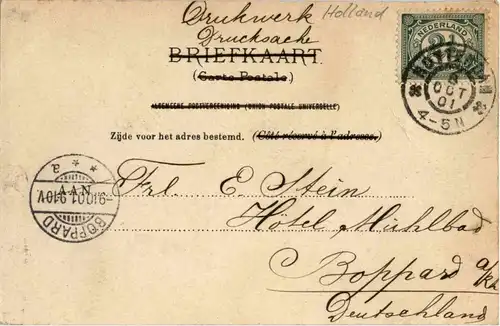 Drukwerk
Holland
Drucksache
BRIEFKAART.
(Carte Postale.)
ALGEMEENE POSTVEREENIGING (UNION POSTALE UNIVERSELLE)
Zijde voor het adres bestemd. (Côté réservé à l'adresse.)
NEDERLAND
2½
ROTTERDAM
8
OCT
01
4-5N
Frl. E. Stein
Hôtel Mühlbad
Boppard a/Rh
Deutschland
* a *
AAN
-9.10.01. 9-10V.
BOPPARD